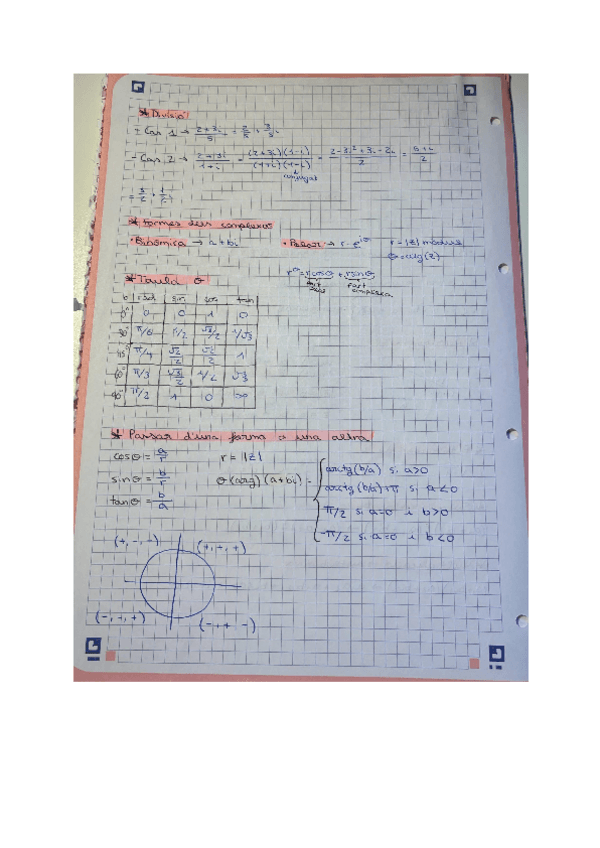 * Divisió
- Cas 1 → (2+3i)/5 = 2/5 + 3/5 i
- Cas 2 → (2+3i)/(1+i) = (2+3i)(1-i)/(1+i)(1-i) = (2-3i²+3i-2i)/2 = (5+i)/2
conjugat
= 5/2 + 1/2 i
* Formes dels complexos
• Binòmica → a+bi • Polar → r·e^iθ r = |z| mòdul
θ = arg(z)
* Taula θ
r^θ = r cosθ + r sinθ
part part
0° rad sin cos tan
0° 0 0 1 0
30° π/6 1/2 √3/2 1/√3
45° π/4 √2/2 √2/2 1
60° π/3 √3/2 1/2 √3
90° π/2 1 0 ∞
* Passar d'una forma a una altra
cosθ = a/r r = |z|
sinθ = b/r θ (arg) (a+bi) =
tanθ = b/a
arctg (b/a) si a>0
arctg (b/a)+π si a<0
π/2 si a=0 i b>0
-π/2 si a=0 i b<0
(+,-,-) (+,+,+)
(-,-,+) (-,+,-)